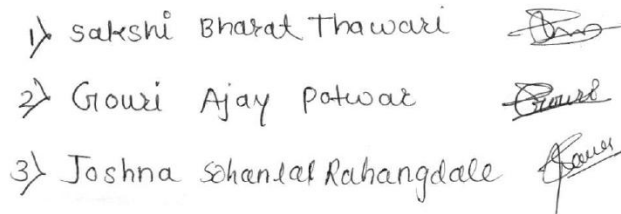 1) Sakshi Bharat Thawari
2) Gouri Ajay Potwar Gouri
3) Joshna Sohanlal Rahangdale